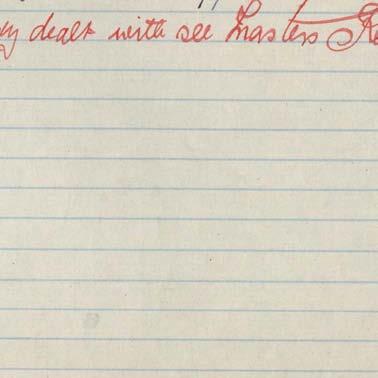 dealt with see Masters